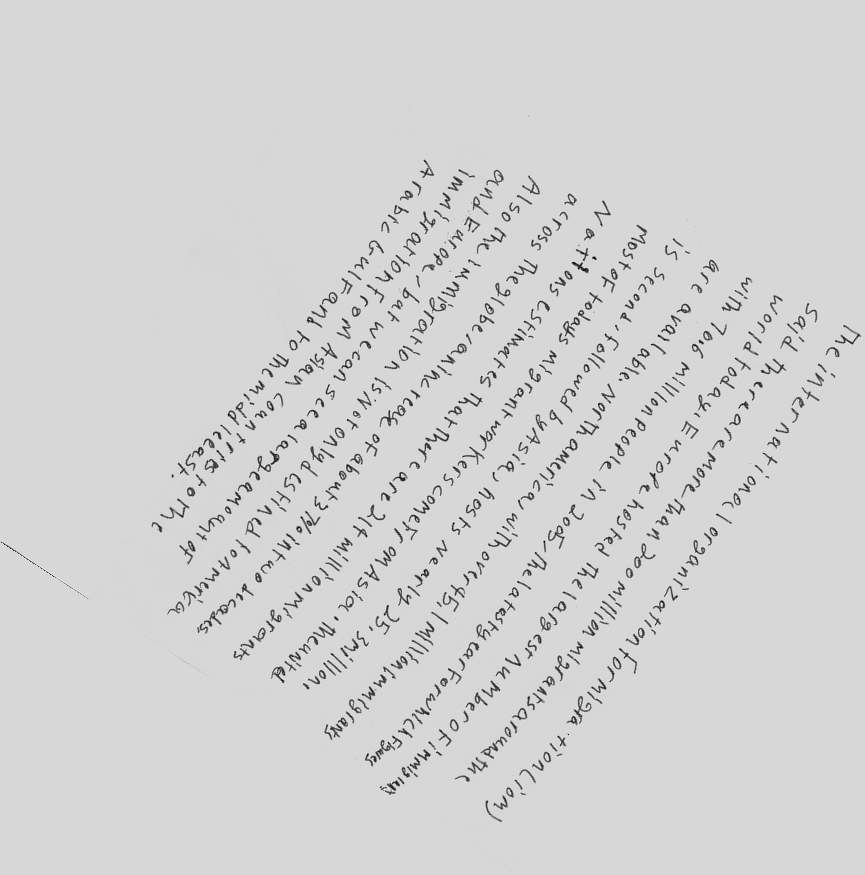 The international organization for migration (iom)
said there are more than 200 million migrants around the
world today. Europe hosted the largest number of immigrants
with 70.6 million people in 2005, the latest year for which figures
are available. North america, with over 45.1 million immigrants
is second, followed by Asia, hosts nearly 25.3 million.
Most of todays migrant workers come from Asia. The united
Nations estimates that there are 214 million migrants
across the globe, an increase of about 37% in two decades.
Also the immigration is not only destined to America
and Europe, but we can see a large amount of
immigration from Asian countries to the
Arabic Gulf and to the middle east.